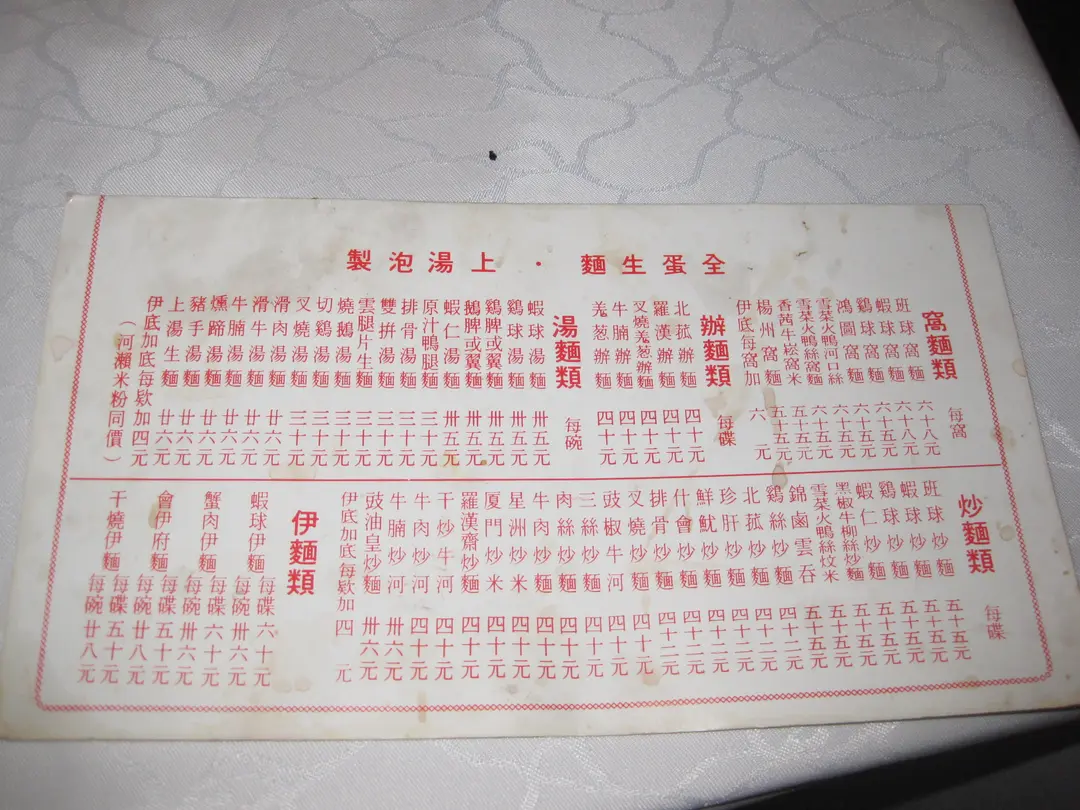 全蛋生麵 · 上湯泡製
窩麵類 每窩
班球窩麵 六十八元
蝦球窩麵 六十八元
鷄球窩麵 六十五元
鴻圖窩麵 六十五元
雪菜火鴨河口絲 六十五元
雪菜火鴨絲窩麵 六十五元
香茜牛崧窩米 五十五元
楊州窩麵 五十五元
伊底每窩加 六元
辦麵類 每碟
北菰辦麵 四十元
羅漢辦麵 四十元
叉燒羗葱辦麵 四十元
牛腩辦麵 四十元
羗葱辦麵 四十元
湯麵類 每碗
蝦球湯麵 卅五元
鷄球湯麵 卅五元
鷄脾或翼麵 卅五元
鵝脾或翼麵 卅五元
蝦仁湯麵 卅五元
原汁鴨腿麵 三十元
排骨湯麵 三十元
雙拼湯麵 三十元
雲腿片生麵 三十元
燒鵝湯麵 三十元
切鷄湯麵 三十元
叉燒湯麵 三十元
滑肉湯麵 廿六元
滑牛湯麵 廿六元
牛腩湯麵 廿六元
燻蹄湯麵 廿六元
豬手湯麵 廿六元
上湯生麵 廿六元
伊底加底每欵加四元
（河瀨米粉同價）
炒麵類 每碟
班球炒麵 五十五元
蝦球炒麵 五十五元
鷄球炒麵 五十五元
蝦仁炒麵 五十五元
黑椒牛柳絲炒麵 五十五元
雪菜火鴨絲炆米 五十五元
錦鹵雲吞 五十五元
鷄絲炒麵 四十二元
北菰炒麵 四十二元
珍肝炒麵 四十二元
鮮魷炒麵 四十二元
什會炒麵 四十二元
排骨炒麵 四十二元
叉燒炒麵 四十元
豉椒牛河 四十元
三絲炒麵 四十元
肉絲炒麵 四十元
牛肉炒麵 四十元
星洲炒米 四十元
厦門炒米 四十元
羅漢齋炒麵 四十元
干炒牛河 四十元
牛肉炒河 四十元
牛腩炒河 卅六元
豉油皇炒麵 卅六元
伊底加底每欵加 四元
伊麵類
蝦球伊麵 每碟六十元
每碗卅六元
蟹肉伊麵 每碟六十元
每碗卅六元
會伊府麵 每碟五十元
每碗廿八元
干燒伊麵 每碟五十元
每碗廿八元